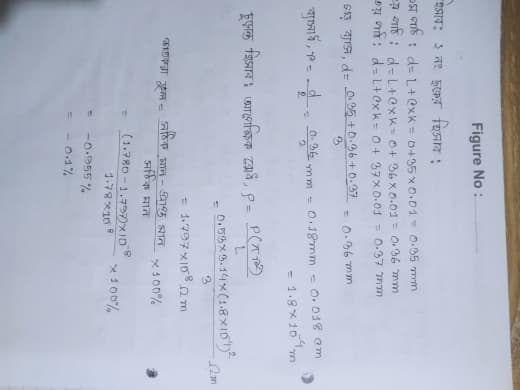 Figure No :
হিসাব: ১ নং ছকের হিসাব :
১ম পাঠ : d = L + C×K = 0+35×0.01 = 0.35 mm
২য় পাঠ : d = L + C×K = 0+ 36×0.01 = 0.36 mm
৩য় পাঠ : d = L + C×K = 0 + 37×0.01 = 0.37 mm
গড় ব্যাস, d = (0.35+0.36+0.37)/3 = 0.36 mm
ব্যাসার্ধ, r = d/2 = 0.36/2 mm = 0.18mm = 0.018 cm
= 1.8×10⁻⁴ m
চূড়ান্ত হিসাব: আপেক্ষিক রোধ, ρ = P(πr²)/L
= 0.53×3.14×(1.8×10⁻⁴)²/3 Ωm
= 1.797×10⁻⁸ Ωm
শতকরা ভুল = (সঠিক মান - প্রাপ্ত মান)/সঠিক মান ×100%
= (1.780-1.797)×10⁻⁸/1.78×10⁻⁸ ×100%
= -0.955%
= -0.1%